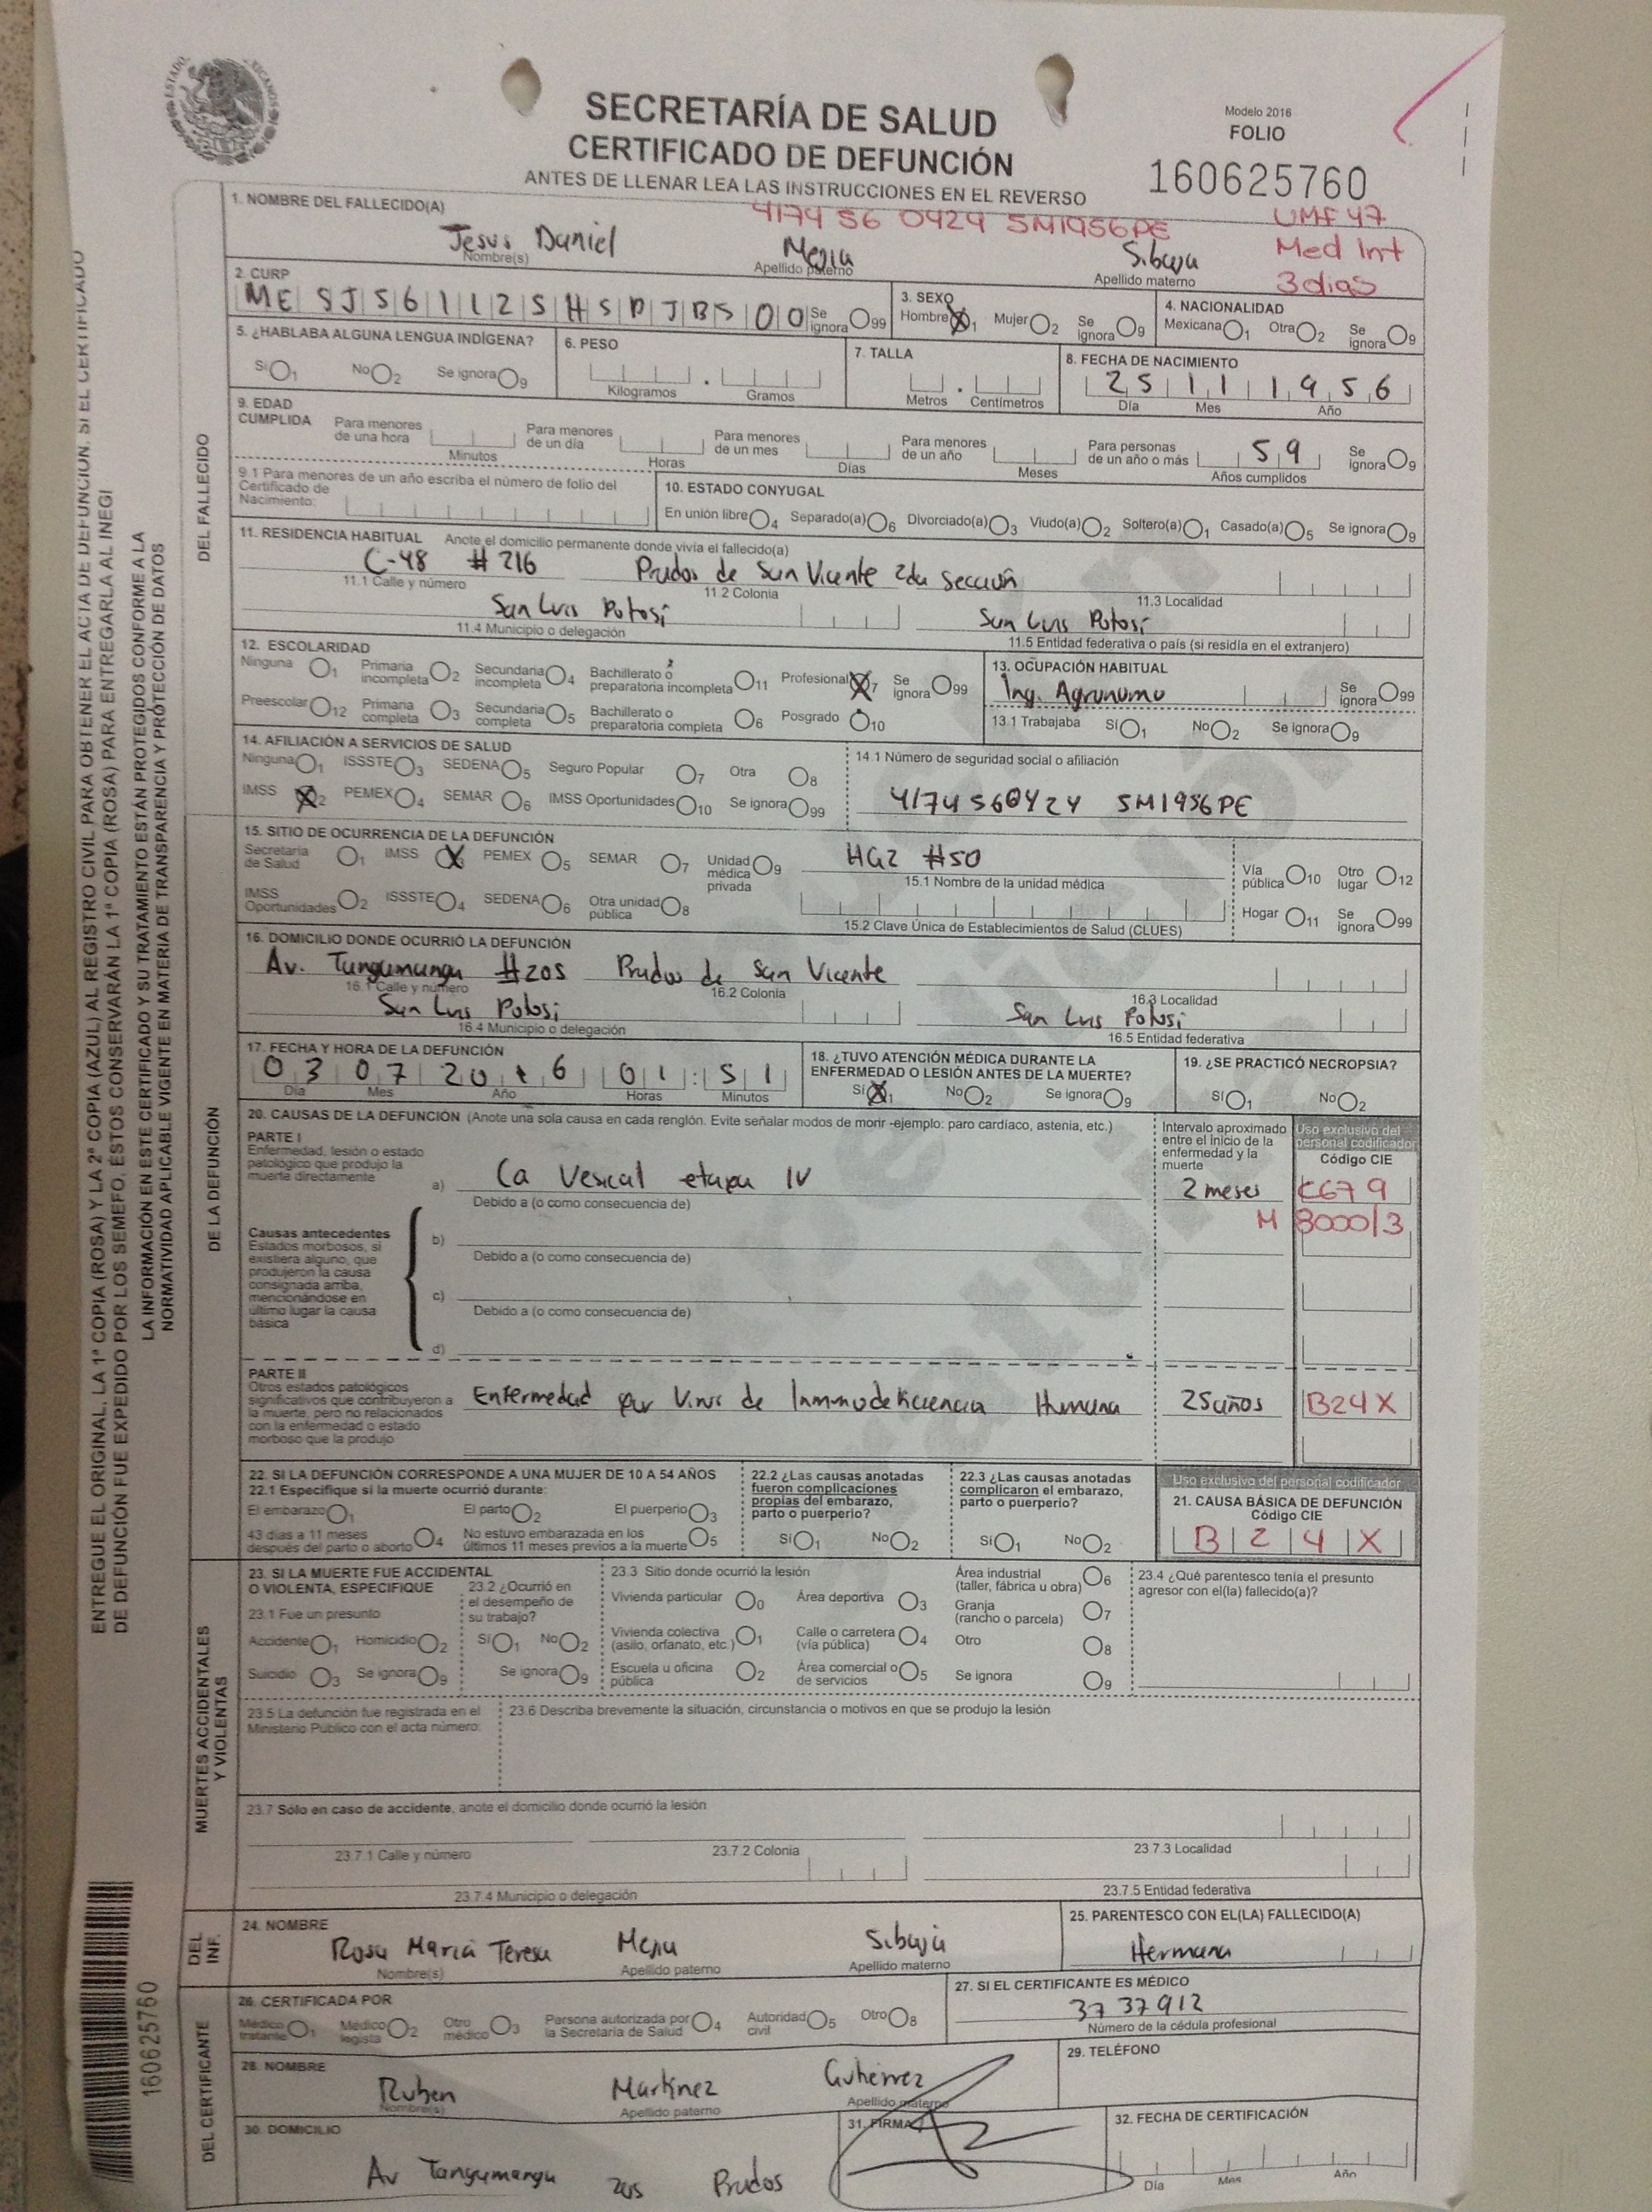 SECRETARÍA DE SALUD
CERTIFICADO DE DEFUNCIÓN
ANTES DE LLENAR LEA LAS INSTRUCCIONES EN EL REVERSO
Modelo 2016
FOLIO
160625760
4174 56 0424 5M1956PE UMF 47
Med Int
3 dias
1. NOMBRE DEL FALLECIDO(A)
Jesus Daniel Mejia Sibaja
Nombre(s) Apellido paterno Apellido materno
2. CURP
MESJ561125HSPJBS00 Se ignora 99
3. SEXO
Hombre X 1 Mujer 2 Se ignora 9
4. NACIONALIDAD
Mexicana 1 Otra 2 Se ignora 9
5. ¿HABLABA ALGUNA LENGUA INDÍGENA?
Sí 1 No 2 Se ignora 9
6. PESO
Kilogramos Gramos
7. TALLA
Metros Centímetros
8. FECHA DE NACIMIENTO
25 11 1956
Día Mes Año
9. EDAD CUMPLIDA
Para menores de una hora Minutos
Para menores de un día Horas
Para menores de un mes Días
Para menores de un año Meses
Para personas de un año o más 59 Años cumplidos
Se ignora 9
9.1 Para menores de un año escriba el número de folio del Certificado de Nacimiento:
10. ESTADO CONYUGAL
En unión libre 4 Separado(a) 6 Divorciado(a) 3 Viudo(a) 2 Soltero(a) 1 Casado(a) 5 Se ignora 9
11. RESIDENCIA HABITUAL Anote el domicilio permanente donde vivía el fallecido(a)
C-48 #216 Prados de San Vicente 2da sección
11.1 Calle y número 11.2 Colonia 11.3 Localidad
San Luis Potosí San Luis Potosí
11.4 Municipio o delegación 11.5 Entidad federativa o país (si residía en el extranjero)
12. ESCOLARIDAD
Ninguna 1 Primaria incompleta 2 Secundaria incompleta 4 Bachillerato o preparatoria incompleta 11 Profesional X 7 Se ignora 99
Preescolar 12 Primaria completa 3 Secundaria completa 5 Bachillerato o preparatoria completa 6 Posgrado 10
13. OCUPACIÓN HABITUAL
Ing. Agronomo Se ignora 99
13.1 Trabajaba Sí 1 No 2 Se ignora 9
14. AFILIACIÓN A SERVICIOS DE SALUD
Ninguna 1 ISSSTE 3 SEDENA 5 Seguro Popular 7 Otra 8
IMSS X 2 PEMEX 4 SEMAR 6 IMSS Oportunidades 10 Se ignora 99
14.1 Número de seguridad social o afiliación
4174560424 5M1956PE
15. SITIO DE OCURRENCIA DE LA DEFUNCIÓN
Secretaría de Salud 1 IMSS X PEMEX 5 SEMAR 7 Unidad médica privada 9
IMSS Oportunidades 2 ISSSTE 4 SEDENA 6 Otra unidad pública 8
HGZ #50
15.1 Nombre de la unidad médica
15.2 Clave Única de Establecimientos de Salud (CLUES)
Vía pública 10 Otro lugar 12
Hogar 11 Se ignora 99
16. DOMICILIO DONDE OCURRIÓ LA DEFUNCIÓN
Av. Tangamanga #205 Prados de San Vicente
16.1 Calle y número 16.2 Colonia 16.3 Localidad
San Luis Potosi San Luis Potosi
16.4 Municipio o delegación 16.5 Entidad federativa
17. FECHA Y HORA DE LA DEFUNCIÓN
03 07 2016 01:51
Día Mes Año Horas Minutos
18. ¿TUVO ATENCIÓN MÉDICA DURANTE LA ENFERMEDAD O LESIÓN ANTES DE LA MUERTE?
Sí X 1 No 2 Se ignora 9
19. ¿SE PRACTICÓ NECROPSIA?
Sí 1 No 2
20. CAUSAS DE LA DEFUNCIÓN (Anote una sola causa en cada renglón. Evite señalar modos de morir -ejemplo: paro cardíaco, astenia, etc.)
Intervalo aproximado entre el inicio de la enfermedad y la muerte
Uso exclusivo del personal codificador
Código CIE
PARTE I
Enfermedad, lesión o estado patológico que produjo la muerte directamente
a) Ca Vesical etapa IV 2 meses C679
Debido a (o como consecuencia de) M 8000/3
Causas antecedentes
Estados morbosos, si existiera alguno, que produjeron la causa consignada arriba, mencionándose en último lugar la causa básica
b)
Debido a (o como consecuencia de)
c)
Debido a (o como consecuencia de)
d)
PARTE II
Otros estados patológicos significativos que contribuyeron a la muerte, pero no relacionados con la enfermedad o estado morboso que la produjo
Enfermedad por Virus de Inmunodeficiencia Humana 25 años B24X
22. SI LA DEFUNCIÓN CORRESPONDE A UNA MUJER DE 10 A 54 AÑOS
22.1 Especifique si la muerte ocurrió durante:
El embarazo 1 El parto 2 El puerperio 3
43 días a 11 meses después del parto o aborto 4 No estuvo embarazada en los últimos 11 meses previos a la muerte 5
22.2 ¿Las causas anotadas fueron complicaciones propias del embarazo, parto o puerperio?
Sí 1 No 2
22.3 ¿Las causas anotadas complicaron el embarazo, parto o puerperio?
Sí 1 No 2
Uso exclusivo del personal codificador
21. CAUSA BÁSICA DE DEFUNCIÓN
Código CIE
B24X
23. SI LA MUERTE FUE ACCIDENTAL O VIOLENTA, ESPECIFIQUE
23.1 Fue un presunto
Accidente 1 Homicidio 2
Suicidio 3 Se ignora 9
23.2 ¿Ocurrió en el desempeño de su trabajo?
Sí 1 No 2
Se ignora 9
23.3 Sitio donde ocurrió la lesión
Vivienda particular 0 Área deportiva 3 Área industrial (taller, fábrica u obra) 6
Granja (rancho o parcela) 7
Vivienda colectiva (asilo, orfanato, etc.) 1 Calle o carretera (vía pública) 4 Otro 8
Escuela u oficina pública 2 Área comercial o de servicios 5 Se ignora 9
23.4 ¿Qué parentesco tenía el presunto agresor con el(la) fallecido(a)?
23.5 La defunción fue registrada en el Ministerio Público con el acta número:
23.6 Describa brevemente la situación, circunstancia o motivos en que se produjo la lesión
23.7 Sólo en caso de accidente, anote el domicilio donde ocurrió la lesión
23.7.1 Calle y número 23.7.2 Colonia 23.7.3 Localidad
23.7.4 Municipio o delegación 23.7.5 Entidad federativa
24. NOMBRE
Rosa María Teresa Mejia Sibaja
Nombre(s) Apellido paterno Apellido materno
25. PARENTESCO CON EL(LA) FALLECIDO(A)
Hermana
26. CERTIFICADA POR
Médico tratante 1 Médico legista 2 Otro médico 3 Persona autorizada por la Secretaría de Salud 4 Autoridad civil 5 Otro 8
27. SI EL CERTIFICANTE ES MÉDICO
3737912
Número de la cédula profesional
28. NOMBRE
Ruben Martinez Gutierrez
Nombre(s) Apellido paterno Apellido materno
29. TELÉFONO
30. DOMICILIO
Av Tangamanga 205 Prados
31. FIRMA
32. FECHA DE CERTIFICACIÓN
Día Mes Año
DEL FALLECIDO
DE LA DEFUNCIÓN
MUERTES ACCIDENTALES Y VIOLENTAS
DEL INF.
DEL CERTIFICANTE
ENTREGUE EL ORIGINAL, LA 1ª COPIA (ROSA) Y LA 2ª COPIA (AZUL) AL REGISTRO CIVIL PARA OBTENER EL ACTA DE DEFUNCIÓN. SI EL CERTIFICADO
DE DEFUNCIÓN FUE EXPEDIDO POR LOS SEMEFO, ÉSTOS CONSERVARÁN LA 1ª COPIA (ROSA) PARA ENTREGARLA AL INEGI
LA INFORMACIÓN EN ESTE CERTIFICADO Y SU TRATAMIENTO ESTÁN PROTEGIDOS CONFORME A LA
NORMATIVIDAD APLICABLE VIGENTE EN MATERIA DE TRANSPARENCIA Y PROTECCIÓN DE DATOS
160625760